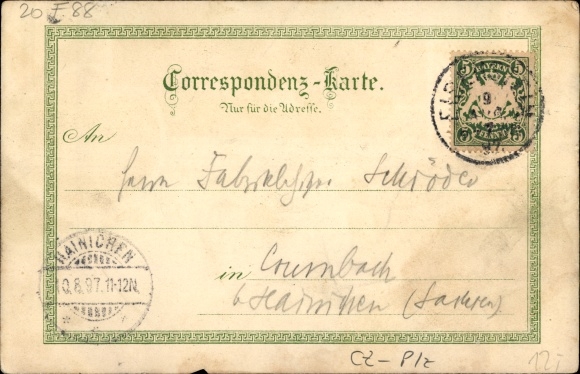 20 F 88
Correspondenz-Karte.
Nur für die Adresse.
5 BAYERN 5
An
Herrn Schröder
HAINICHEN
0.8.97.11-12N.
in
b Hainichen (Sachsen)
CZ - Plz
12,-